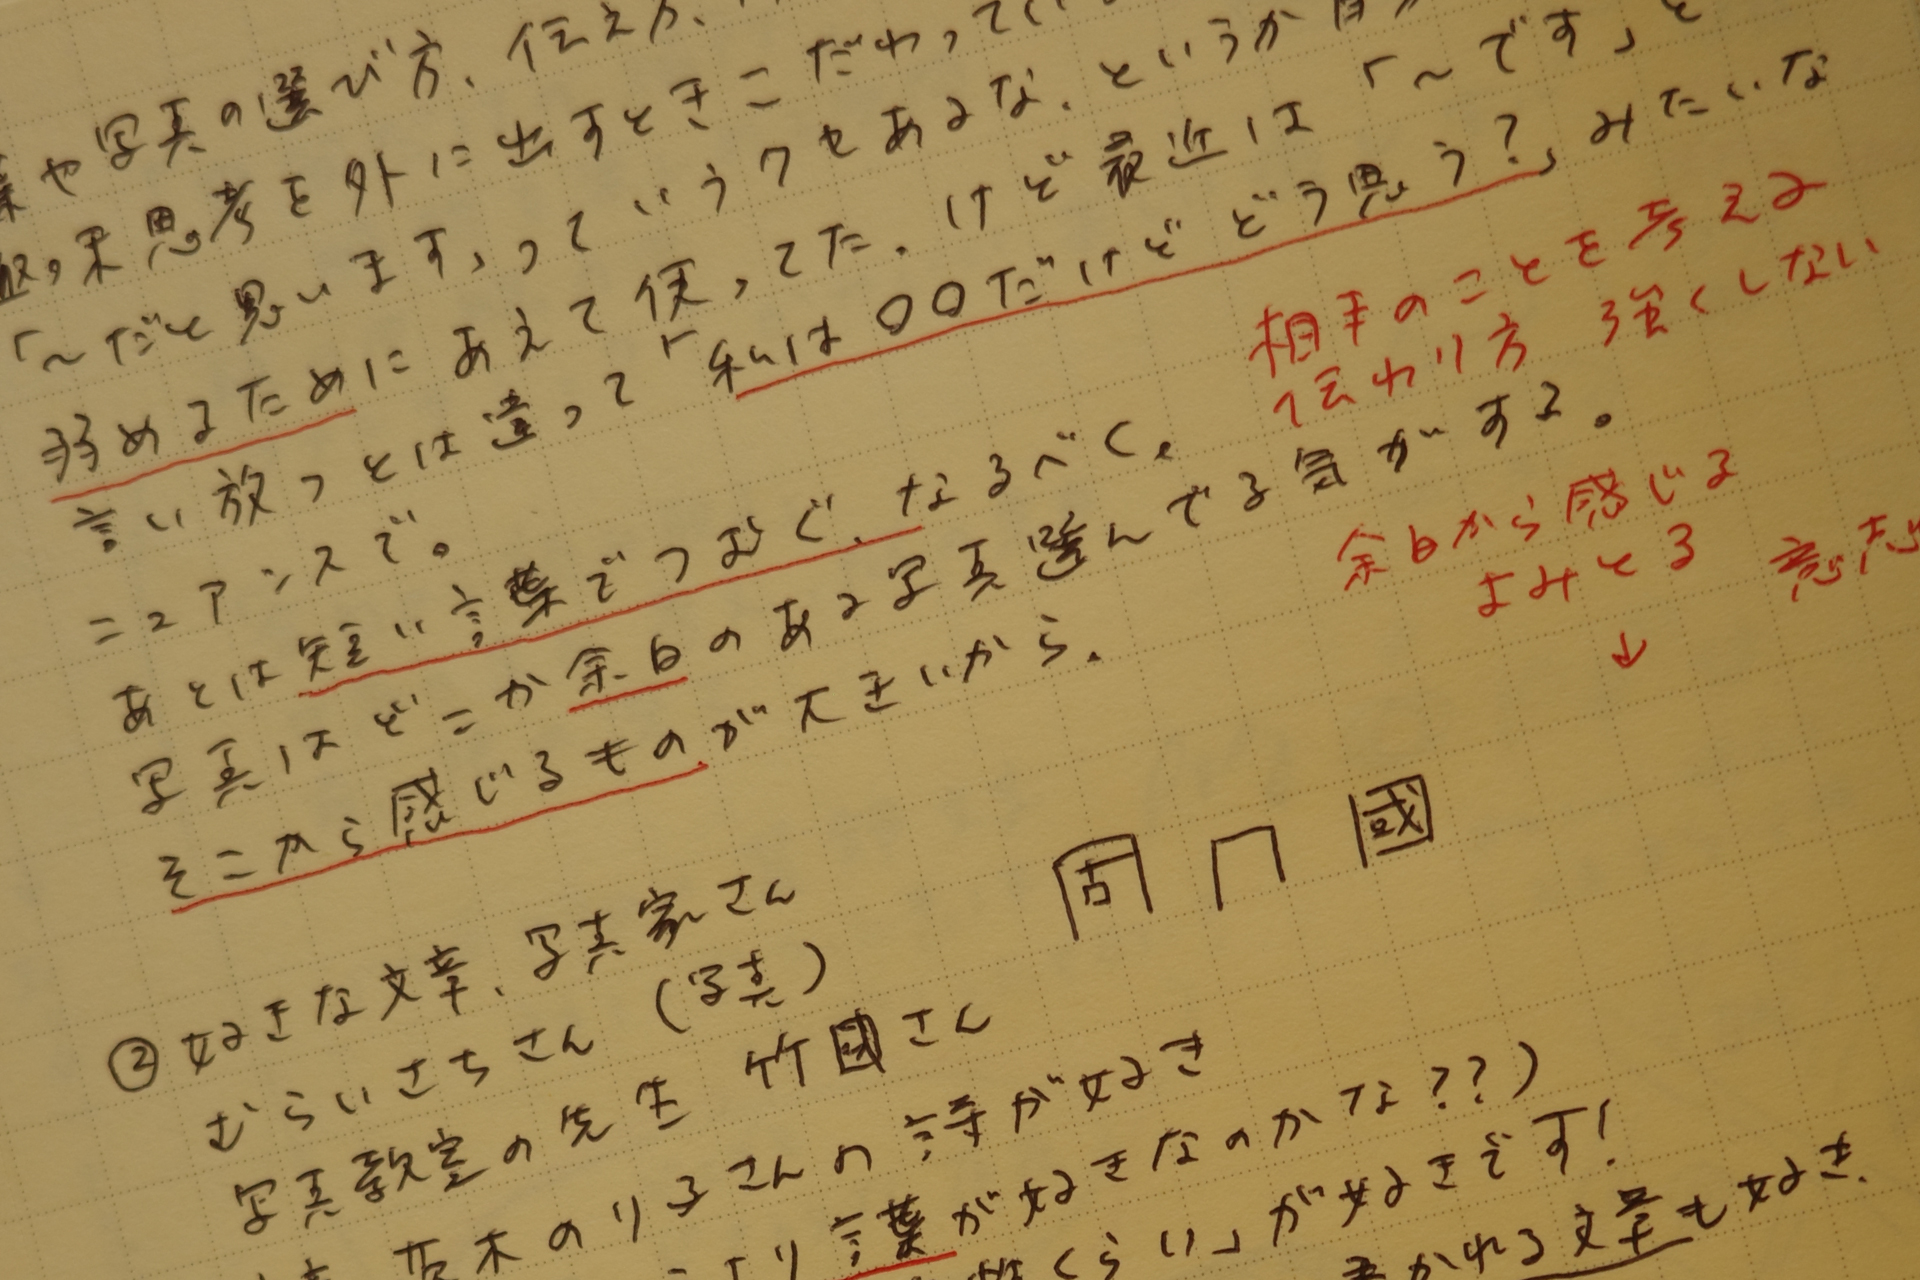 や写真の選び方、伝え方、
思考を外に出すときこだわってい
「〜だと思います」っていうクセあるな、というか自
弱めるためにあえて使ってた。けど最近は「〜です」と
言い放つとは違って「私は〇〇だけどどう思う?」みたいな
ニュアンスで。
相手のことを考える
伝わり方 強くしない
あとは短い言葉でつむぐ、なるべく。
写真はどこか余白のある写真選んでる気がする。
そこから感じるものが大きいから、
余白から感じる
よみとる 意志
↓
②好きな文章、写真家さん
むらいさちさん (写真)
写真教室の先生 竹國さん
茨木のり子さんの詩が好き
より言葉が好きなのかな??)
くらい」が好きです!
かれる文章も好き、
冂 國